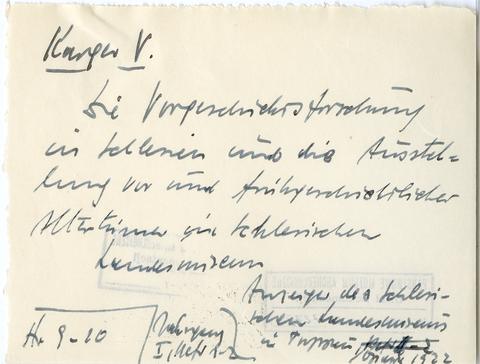 Karger V.
Die Vorgeschichtsforschung
in Schlesien und die Ausstel-
lung vor und frühgeschichtlicher
Altertümer im Schlesischen
Landesmuseum
Anzeiger des Schlesi-
schen Landesmuseums
in Troppau
1922
H. 9-20
Jahrgang
I, Heft 1-2